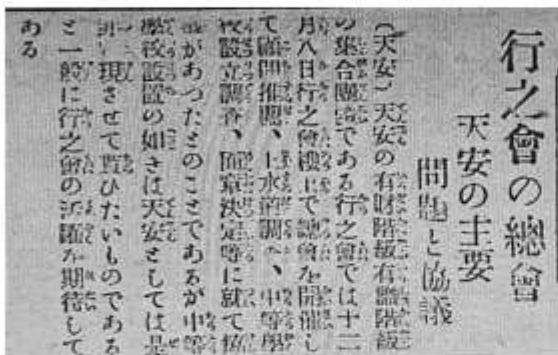 行之會の總會
天安の主要
問題と協議
(天安)天安の有財階級有識階級
の集合團體である行之會では十二
月八日行之會樓上で總會を開催し
て顧問推薦、上水道調査、中等學
校設立調査、徽章決定等に就て協
議があつたとのことであるが中等
學校設置の如きは天安としては是
現させて貰ひたいものである
と一般に行之會の活躍を期待して
ある